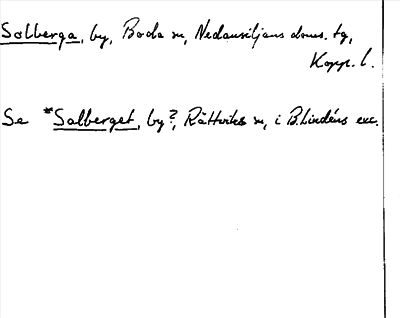 Solberga, by, Boda sn, Nedansiljans doms. tg,
Kopp. l.
Se *Solberget, by?, Rättviks sn, i B. Lindéns exc.